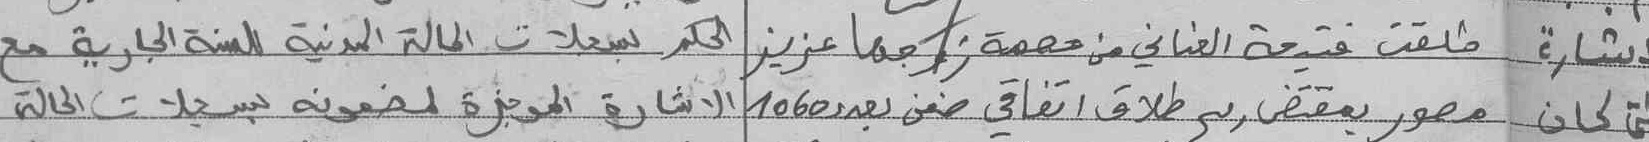 إشارة طلقت فتيحة العناني من عصمة زوجها عزيز الحكم بسجلات الحالة المدنية للسنة الجارية مع
كان مصور بمقتضى رسم طلاق اتفاقي ضمن بعدد 1060 الاشارة الموجزة لمضمونه بسجلات الحالة